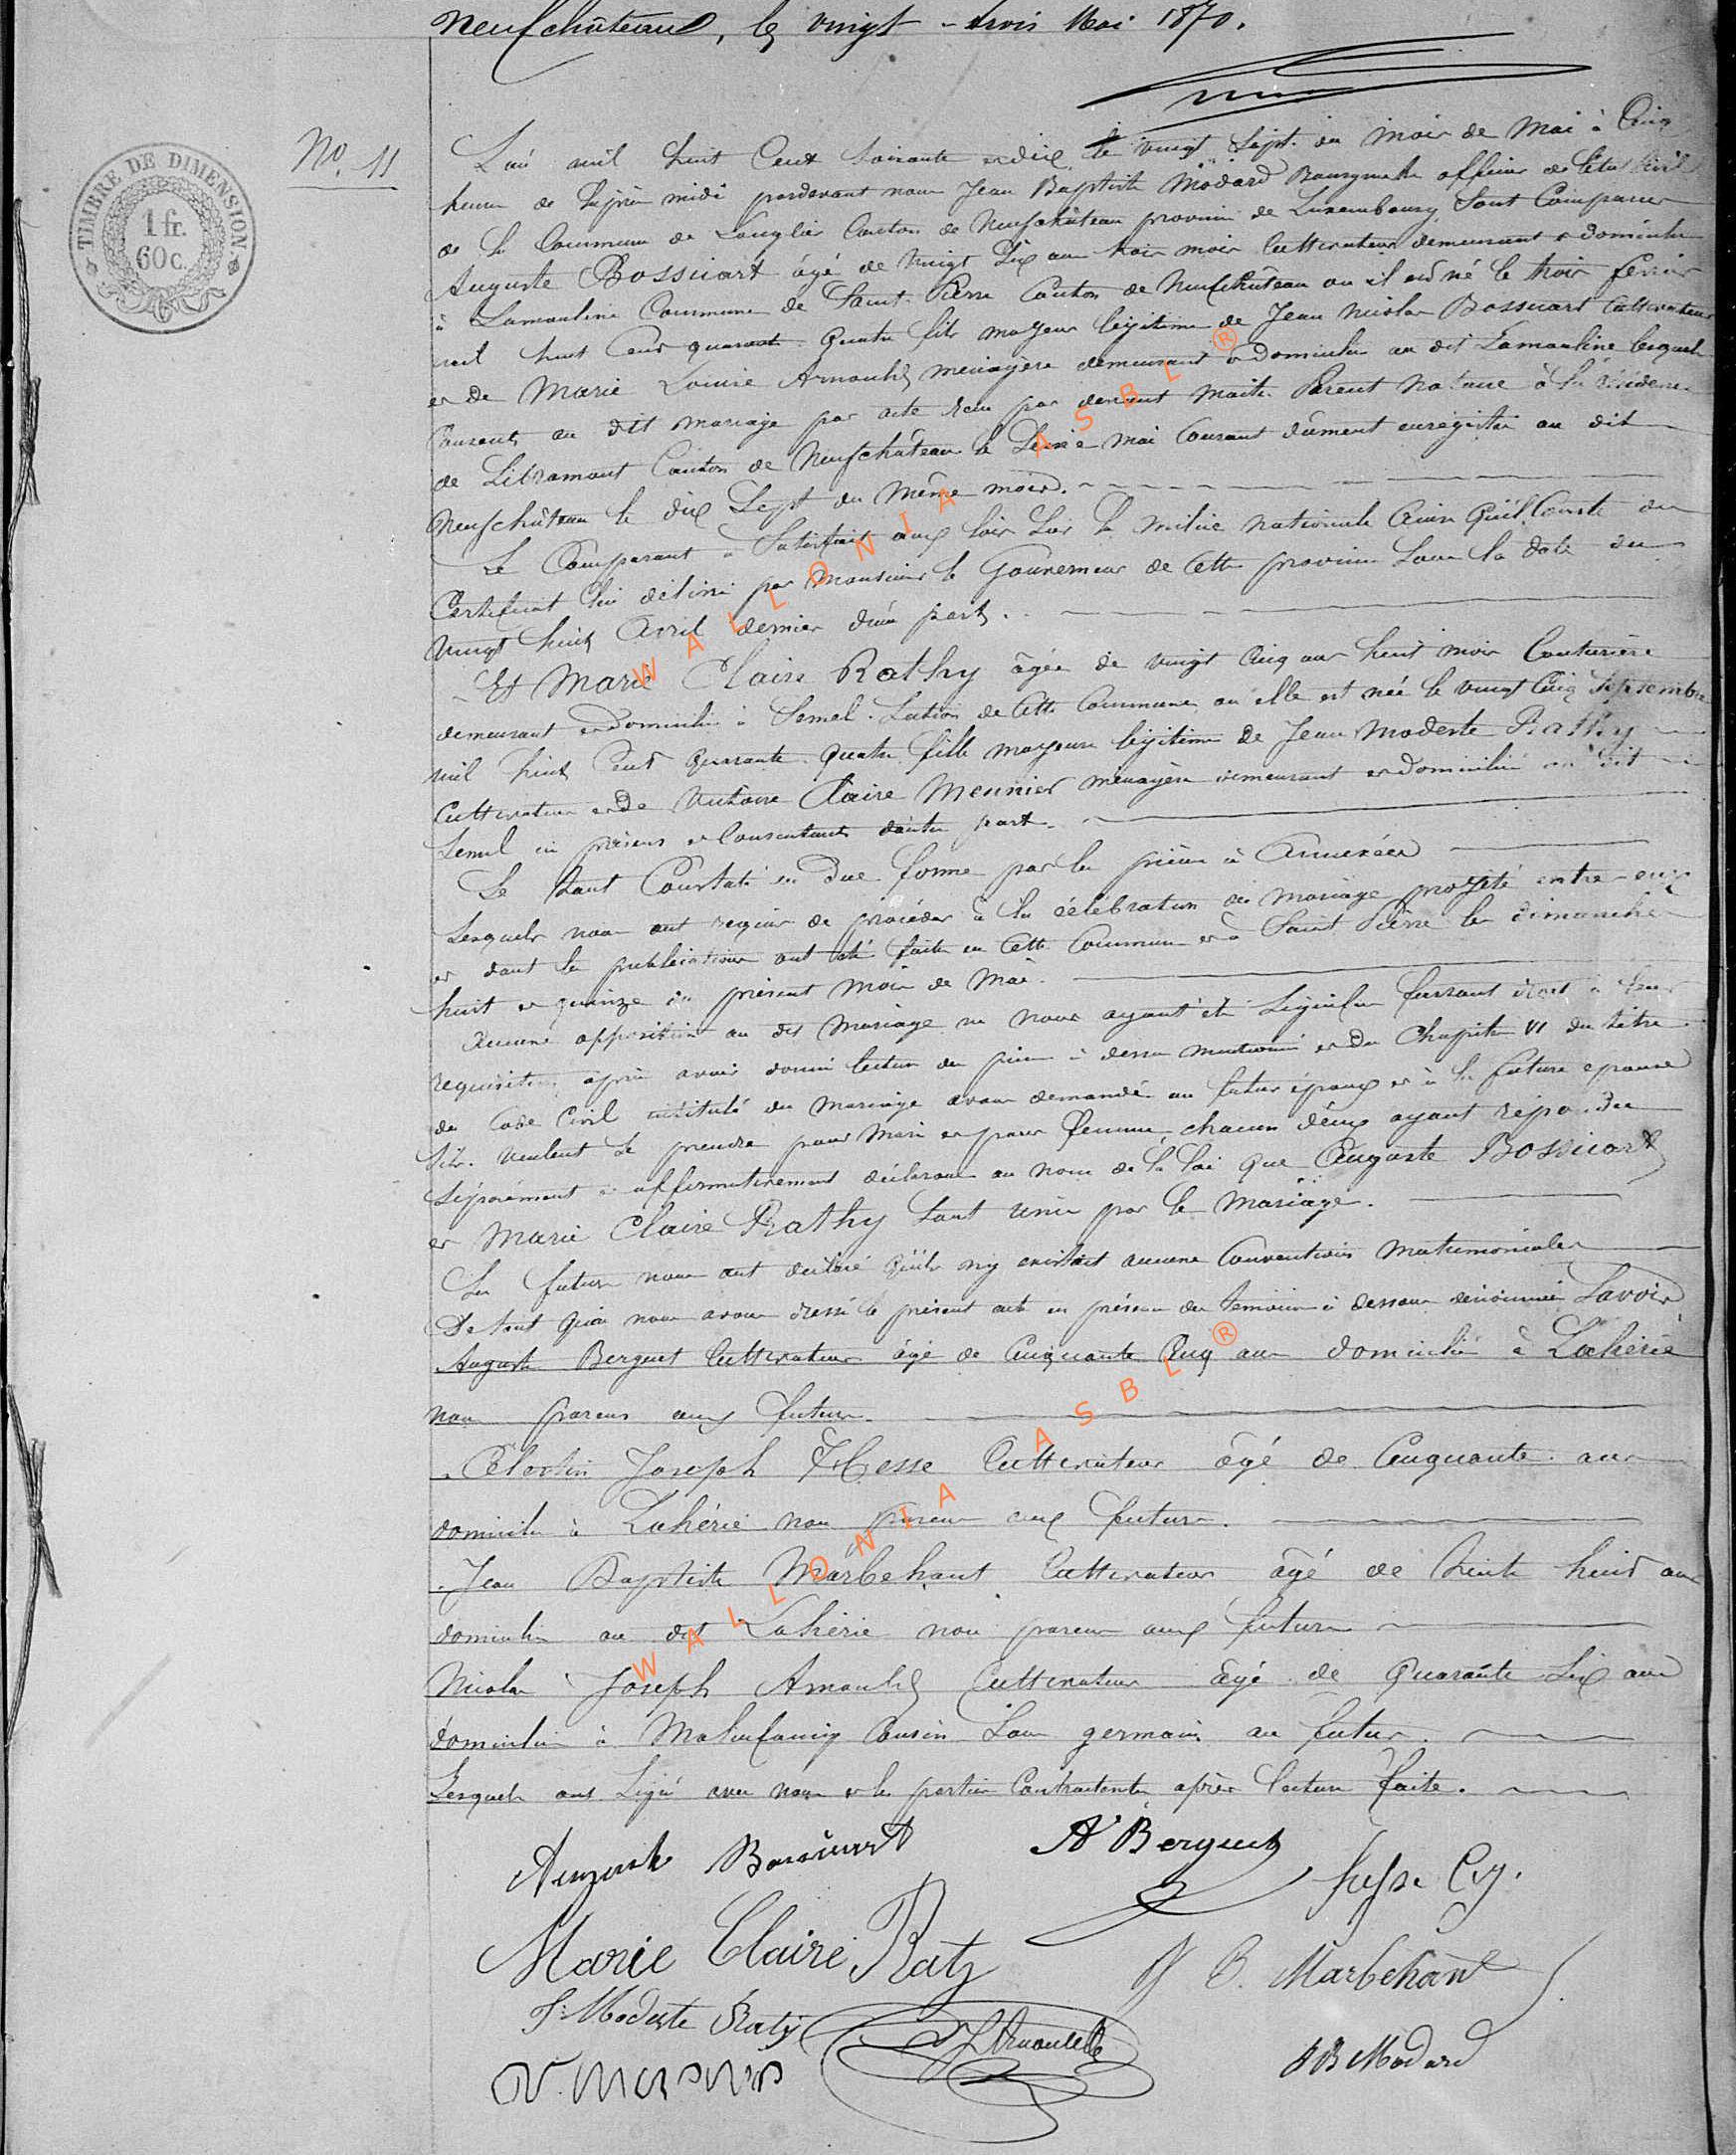 Neufchâteau, le vingt-trois Mai 1870.
TIMBRE DE DIMENSION
1 fr.
60 c.
No. 11
L'an mil huit Cent soixante et dix le vingt Sept du mois de Mai à Cinq
heures de l'après midi pardevant nous Jean Baptiste Modard Bourgmestre officier de l'état Civil
de la Commune de Longlier Canton de Neufchâteau province de Luxembourg, Sont Comparus
Auguste Bossicart âgé de vingt Six ans trois mois Cultivateur demeurant et domicilié
à Lamouline Commune de Saint-Pierre Canton de Neufchâteau où il est né le trois février
mil huit Cent quarante quatre fils majeur légitime de Jean Nicolas Bossicart Cultivateur
et de Marie Louise Arnould ménagère demeurant et domiciliés au dit Lamouline lesquels
Consent au dit mariage par acte reçu par devant Maître Parent Notaire à la résidence
de Libramont Canton de Neufchâteau le Seize mai Courant dûment enregistré au dit
Neufchâteau le dix Sept du même mois.
Le Comparant a Satisfait aux lois Sur la milice nationale Ainsi qu'il Conste du
Certificat lui délivré par Monsieur le Gouverneur de Cette province Sous la date du
vingt huit Avril dernier d'une part.
Et Marie Claire Rathy âgée de vingt Cinq ans huit mois Couturière
demeurant et domiciliée à Semel Section de Cette Commune où elle est née le vingt Cinq Septembre
mil huit Cent quarante quatre fille majeure légitime de Jean Modeste Rathy
Cultivateur et de Victoire Claire Meunier ménagère demeurant et domiciliés au dit
Semel ici présens et Consentants d'autre part.
Le tout Constaté en Due forme par les pièces ci Annexées
Lesquels nous ont requis de procéder à la célébration du mariage projeté entre eux
et dont les publications ont été faites en Cette Commune et à Saint Pierre les dimanches
huit et quinze du présent mois de Mai.
Aucune opposition au dit mariage ne nous ayant été Signifiée faisant droit à leur
requisition, après avoir donné lecture des pièces ci dessus mentionnées et du Chapitre VI du titre
du Code Civil intitulé du mariage avons demandé au futur époux et à la future épouse
S'ils veulent Se prendre pour Mari et pour femme, chacun d'eux ayant répondu
Séparément et affirmativement déclarons au nom de la loi que Auguste Bossicart
et Marie Claire Rathy Sont unis par le mariage.
Les futurs nous ont déclaré qu'ils n'y existait aucune Conventions matrimoniales
De tout quoi nous avons dressé le présent acte en présence des témoins ci dessous dénommés Savoir
Auguste Berguet Cultivateur âgé de Cinquante Cinq ans domicilié à Lahérie
non parens aux futurs.
Célestin Joseph Hesse Cultivateur âgé de Cinquante ans
domicilié à Lahérie non parens aux futurs.
Jean Baptiste Marbehant Cultivateur âgé de trente huit ans
domicilié au dit Lahérie non parens aux futurs
Nicolas Joseph Arnould Cultivateur âgé de Quarante Six ans
domicilié à Molinfaing Cousin Sous germain au futur.
Lesquels ont Signé avec nous et les parties Contractantes après lecture faite.
Auguste Bossicart
A Berguet
Marie Claire Raty
J B Marbehant
J: Modeste Raty
Arnould
JB Modard
WALLONIA ASBL ®
WALLONIA ASBL ®